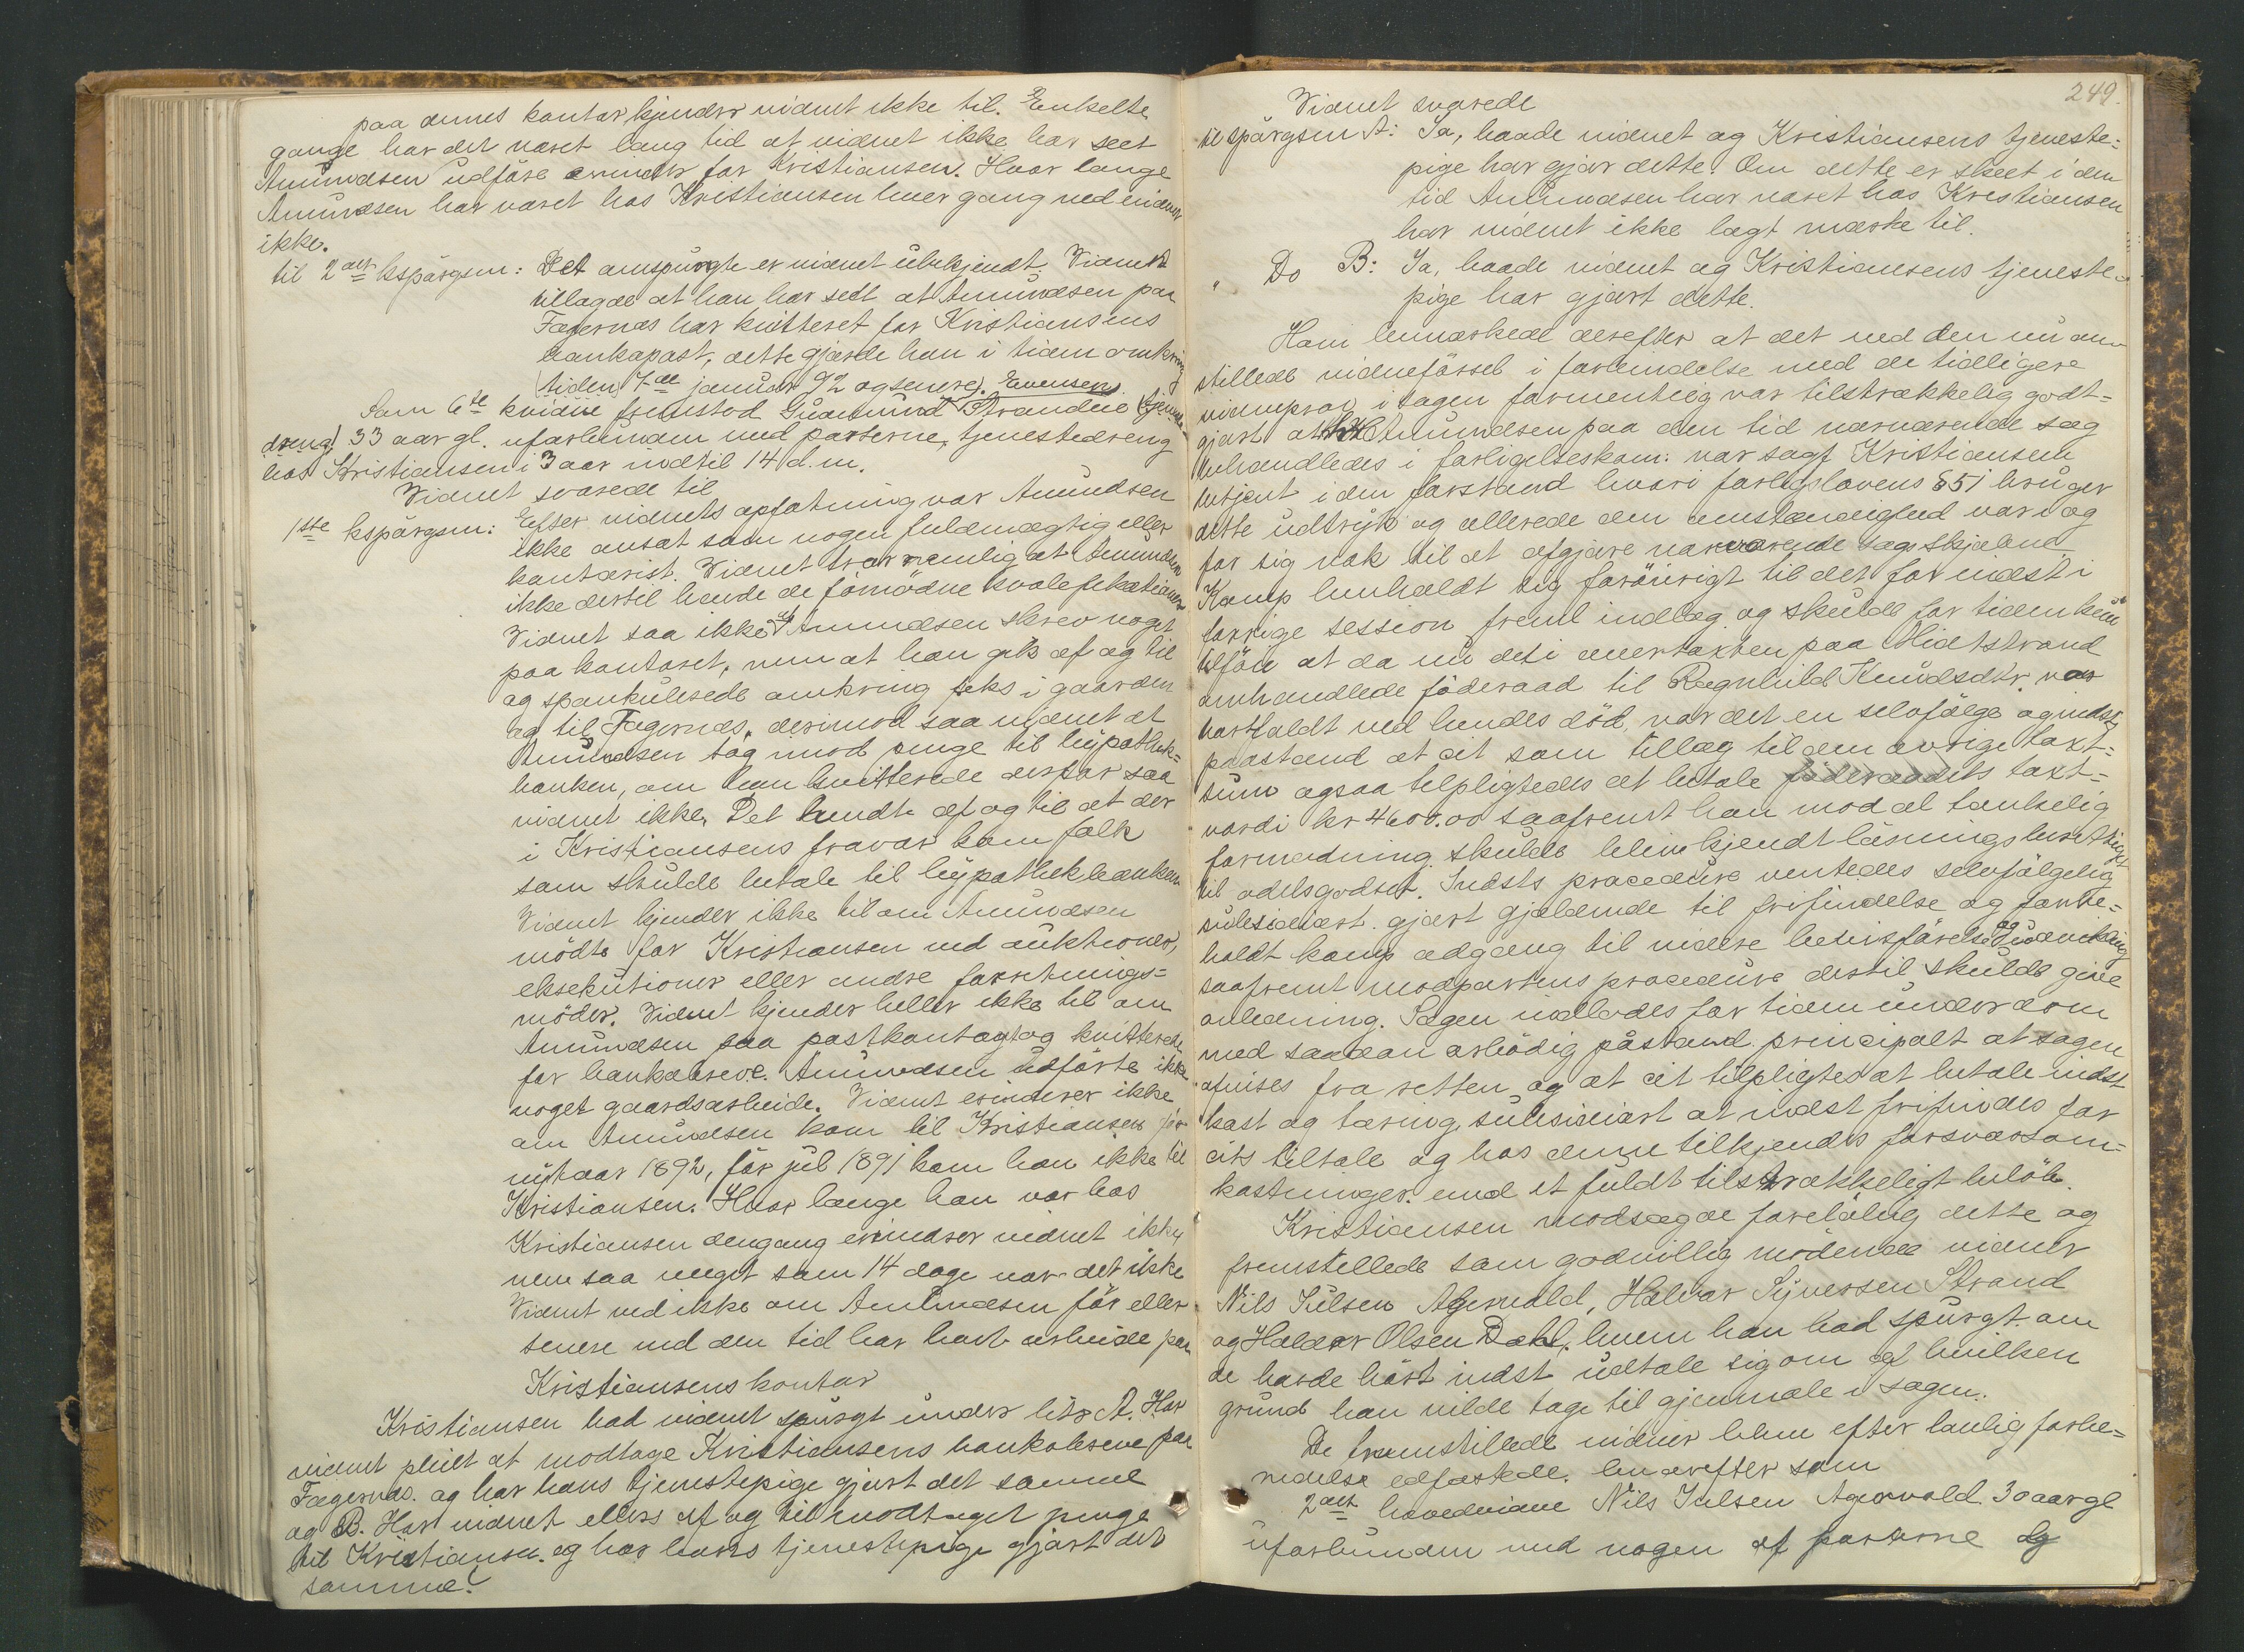 paa dennes kontor, kjender vidnet ikke til. Enkelte
gange har det været lang tid at vidnet ikke har seet
Amundsen udføre erinder for Kristiansen. Hvor længe
Amundsen har været hos Kristiansen hver gang ved vidnet
ikke.
til 2det kspörgsm: Det omspurgte er vidnet ubekjendt. Vidnet
tillagde at han har sett at Amundsen paa
Fagernæs har kvitteret for Kristiansens
bankopost, dette gjorde han i tiden omkring
(tiden 7de januar 92 og senere). Evensen
Som 6te kvidne fremstod Gudmund Strandlie (tjeneste
dreng) 33 aar gl. uforbunden med parterne, tjenestedreng
hos Kristiansen i 3 aar indtil 14 d.m.
Vidnet svarede til
1ste kspörgsm: Efter vidnets opfatning var Amundsen
ikke ansat som nogen fuldmægtig eller
kontorist. Vidnet tror nemlig at Amundsen
ikke dertil havde de fornödne kvalifikationer
Vidnet saa ikke at Amundsen skrev noget
paa kontoret, men at han gik af og til
og spankulerede omkring feks i gaarden
og til Fagernæs, derimod saa vidnet at
Amundsen tog mod penge til hypothek-
banken, om han kvitterede derfor saa
vidnet ikke. Det hendte af og til at der
i Kristiansens fravær kom folk
som skulde betale til hypothekbanken
Vidnet kjender ikke til om Amundsen
mödte for Kristiansen ved auktioner,
eksekutioner eller andre forretnings-
möder. Vidnet kjender heller ikke til om
Amundsen paa postkontoret og kvitterede
for bankobreve. Amundsen udförte ikke
noget gaardsarbeide. Vidnet erindrer ikke
om Amundsen kom til Kristiansen för
nytaar 1892, för jul 1891 kom han ikke til
Kristiansen. Hvor længe han var hos
Kristiansen dengang erindrer vidnet ikke,
men saa meget som 14 dage var det ikke
Vidnet ved ikke om Amundsen för eller
senere end den tid har havt arbeide paa
Kristiansens kontor
Kristiansen bad vidnet spurgt under litr A. Har
vidnet pleiet at modtage Kristiansens bankobreve paa
Fagernæs. og har hans tjenestepige gjort det samme
og B. Har vidnet ellers af og til modtaget penge
til Kristiansen. og har hans tjenestepige gjort det
samme?
249.
Vidnet svarede
til spörgsm A: Ja, baade vidnet og Kristiansens tjeneste-
pige har gjor dette. Om dette er skeet i den
tid Amundsen har været hos Kristiansen
har vidnet ikke lagt mærke til.
" Do B: Ja, baade vidnet og Kristiansens tjeneste-
pige har gjort dette.
Ham bemærkede derefter at det ved den nu an-
stillede vidneförsel i forbindelse med de tidligere
vidneprov i sagen formentlig var tilstrækkelig godt-
gjort at Amundsen paa den tid nærværende sag
behandledes i forligelseskom: var sagf Kristiansen
betjent i den forstand hvori forligslovens § 51 bruger
dette udtryk og allerede den omstændighed var i og
for sig nok til at afgjøre nærværende sags skjæbne
Kamp henholdt sig foröiorigt til det for indst i
forrige session freml indlæg og skulde for tiden kun
tilföie at da nu det i overtaxten paa Midtstrand
omhandlede föderaad til Ragnhild Knudsdtr. var
bortfaldt ved hendes död, var det en selvfölge og indst
paastand at cit som tillæg til den övrige taxt-
sum ogsaa tilpligtedes at betale föderaadets taxt-
værdi kr 4600.00 saafremt han mod al tænkelig
formodning skulde blive kjendt løsningsberettiget
til odelsgodset. Indsts procedure ventedes selvfölgelig
subsidiært gjort gjældende til frifindelse og forbe-
holdt kamp adgang til videre bevisförelse og udvikling
saafremt modpartens procedure dertil skulde give
anledning. Sagen indlodes for tiden under dom
med saadan ærbödig påstand principalt at sagen
afvises fra retten og at cit tilpligtes at betale indst
kost og tæring, subsidiært at indst frifindes for
cits tiltale og hos denne tilkjendes forsvarsom-
kostninger. med et fuldt tilstrækkeligt belöb.
Kristiansen modsagde forelöbig dette og
fremstillede som godvillig mödende vidner
Nils Julsen Agervold, Halvor Syversen Strand
og Haldor Olsen Dahl, hvem han bad spurgt om
de havde hört indst udtale sig om af hvilken
grund han vilde tage til gjenmæle i sagen.
De fremstillede vidner blev efter lovlig forbe-
redelse edfæstede. hvorefter som
2det hovedvidne Nils Julsen Agervold. 30 aar gl
uforbunden med nogen af parterne og